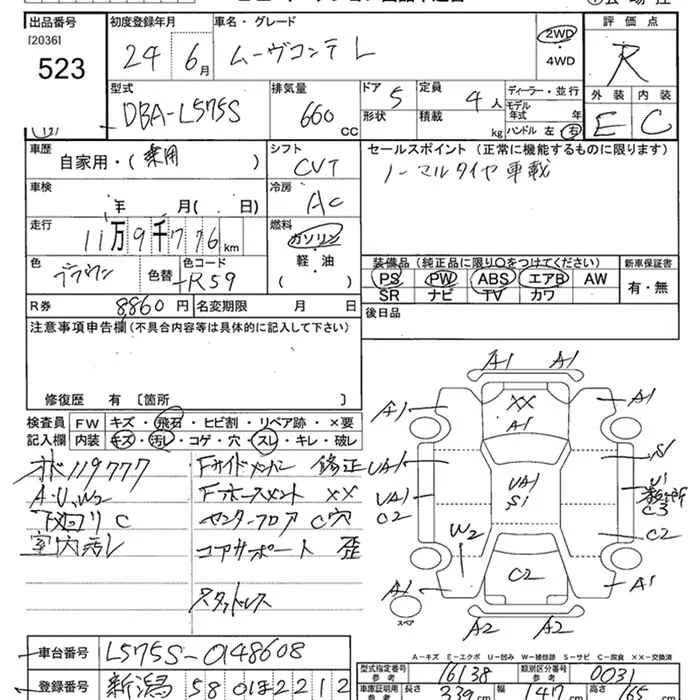 出品番号
[2036]
523
初度登録年月
24 6月
車名・グレード
ムーヴコンテ L
2WD
・
4WD
評価点
R
型式
DBA-L575S
排気量
660 CC
ドア 5
形状
定員 4人
積載 kg
ディーラー・並行
モデル
年式 年
ハンドル 左 右
外装 内装
E C
車歴
自家用・( 乗用 )
シフト
CVT
セールスポイント (正常に機能するものに限ります)
ノーマルタイヤ車載
車検
年 月( 日)
冷房
AC
走行
11万9千776 km
燃料
ガソリン
軽・油
( )
色
ブラウン
色替
色コード
R59
装備品 (純正品に限り○をつけてください)
PS PW ABS エアB AW
SR ナビ TV カワ
新車保証書
有・無
R券 8860円
名変期限 月 日
後日品
注意事項申告欄 (不具合内容等は具体的に記入して下さい)
修復歴 有 [箇所 ]
検査員
記入欄
FW キズ・飛石・ヒビ割・リペア跡・×要
内装 キズ・汚レ・コゲ・穴・スレ・キレ・破レ
119777
A・U、W2
下回りC
室内汚レ
Fサイドメンバー 修正
Fホースメント ××
センターフロア C穴
コアサポート 歪
スタッドレス
A1 A1
A1 ×× A1
A1
UA1 S1
UA1 UA1 U1
C2 S1 C3
W2 C2
C2
A1 A1
スペア
A2 A2
A−キズ E−エクボ U−凹み W−補修跡 S−サビ C−腐食 ××−交換済
車台番号 L575S-0148608
登録番号 新潟 580ほ2212
型式指定番号
参考
16138
類別区分番号
参考
0031
車庫証明用
参考
長さ 339 cm
幅 147 cm
高さ 165 cm